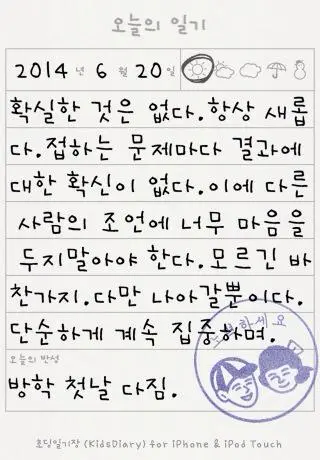 오늘의 일기
2014 년 6 월 20 일
확실한 것은 없다.항상 새롭
다.접하는 문제마다 결과에
대한 확신이 없다.이에 다른
사람의 조언에 너무 마음을
두지말아야 한다.모르긴 바
찬가지.다만 나아갈뿐이다.
단순하게 계속 집중하며.
오늘의 반성
방학 첫날 다짐.
초딩일기장 (KidsDiary) for iPhone & iPod Touch